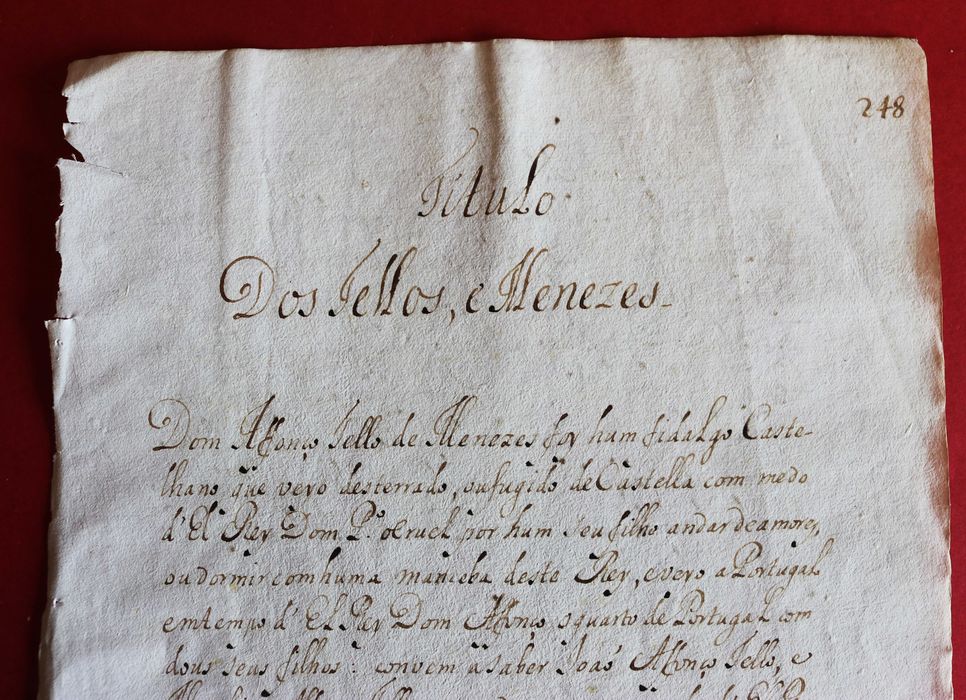 248
Titulo
Dos Tellos, e Menezes.
Dom Affonço Tello de Menezes foy hum fidalgo Caste-
lhano que veyo desterrado, ou fugido de Castella com medo
d' El Rey Dom P.º o cruel por hum seu filho andar de amores,
ou dormir com huma manceba deste Rey, e veyo a Portugal
em tempo d' El Rey Dom Affonço o quarto de Portugal com
dous seus filhos: convem a saber Joaõ Affonço Tello, e
Tello